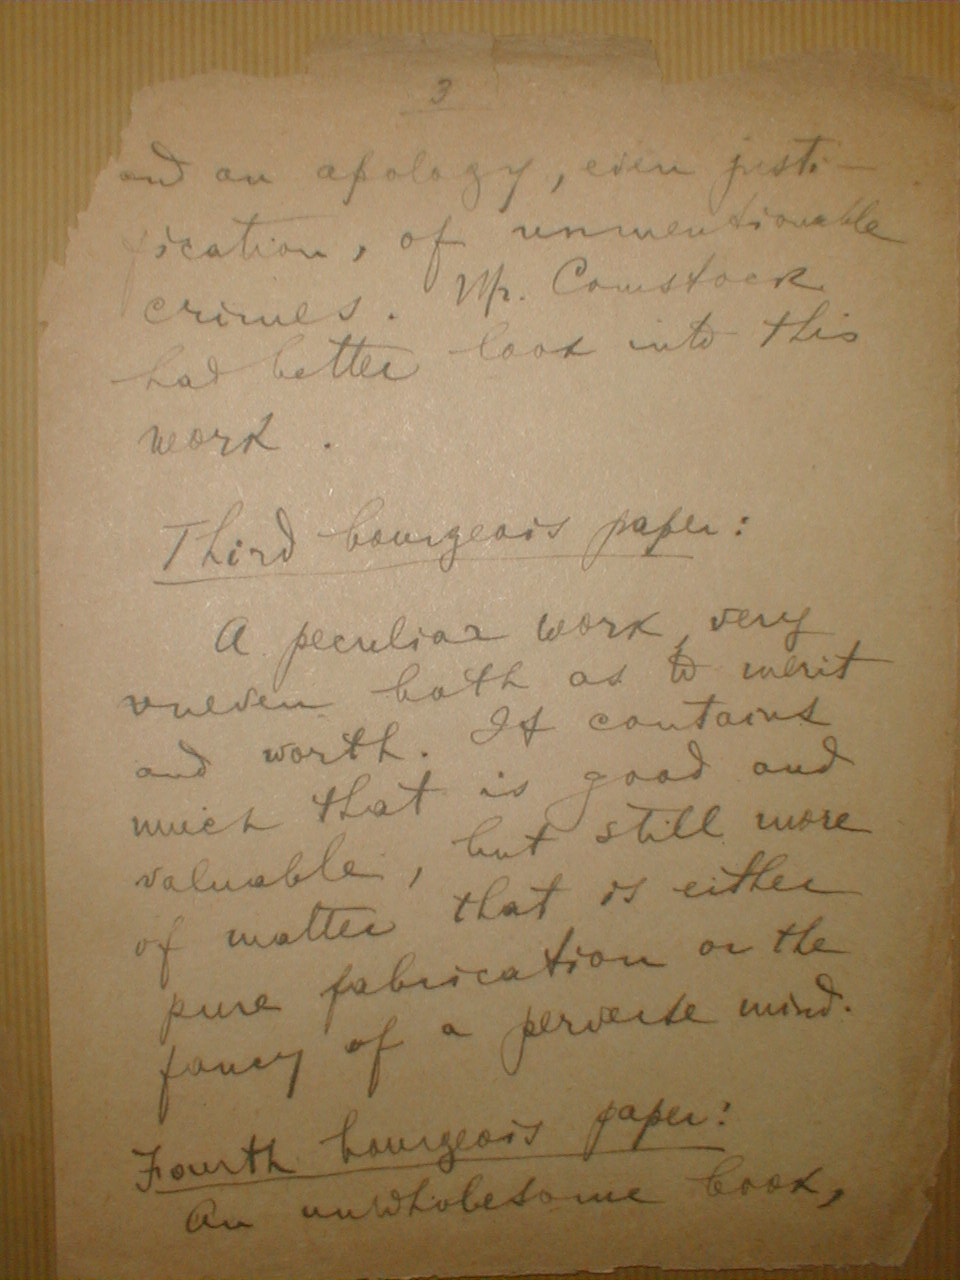 3
and an apology, even justi-
fication, of unmentionable
crimes. Mr. Comstock
had better look into this
work.
Third bourgeois paper:
A peculiar work, very
uneven both as to merit
and worth. It contains
much that is good and
valuable, but still more
of matter that is either
pure fabrication or the
fancy of a perverse mind.
Fourth bourgeois paper:
An unwholesome book,